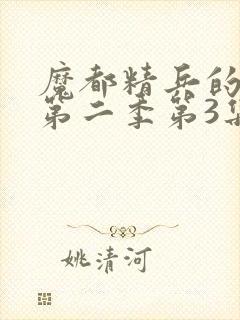 魔都精兵的
第二季第3集
姚清河